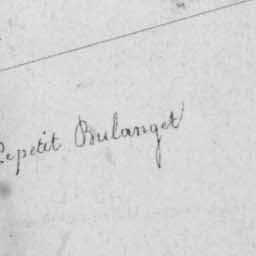 Lepetit Bulanget